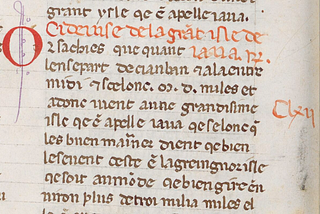 grant ysle qe ē apelle iaua.
Ci deuise de la grāt isle de
Or sachies que quant iaua.
len se part de cianban ⁊ ala entre
midi ⁊ seloc. m. d. miles et
adonc uient a une grandisime
isle qe ē apelle iaua qe selonc q̄
les buen maīner dient qe bien
le seuent ceste ē la greingner isle
qe soit au mōde qe bien gire ēn
uiron plus de troi milia miles el
Clxii